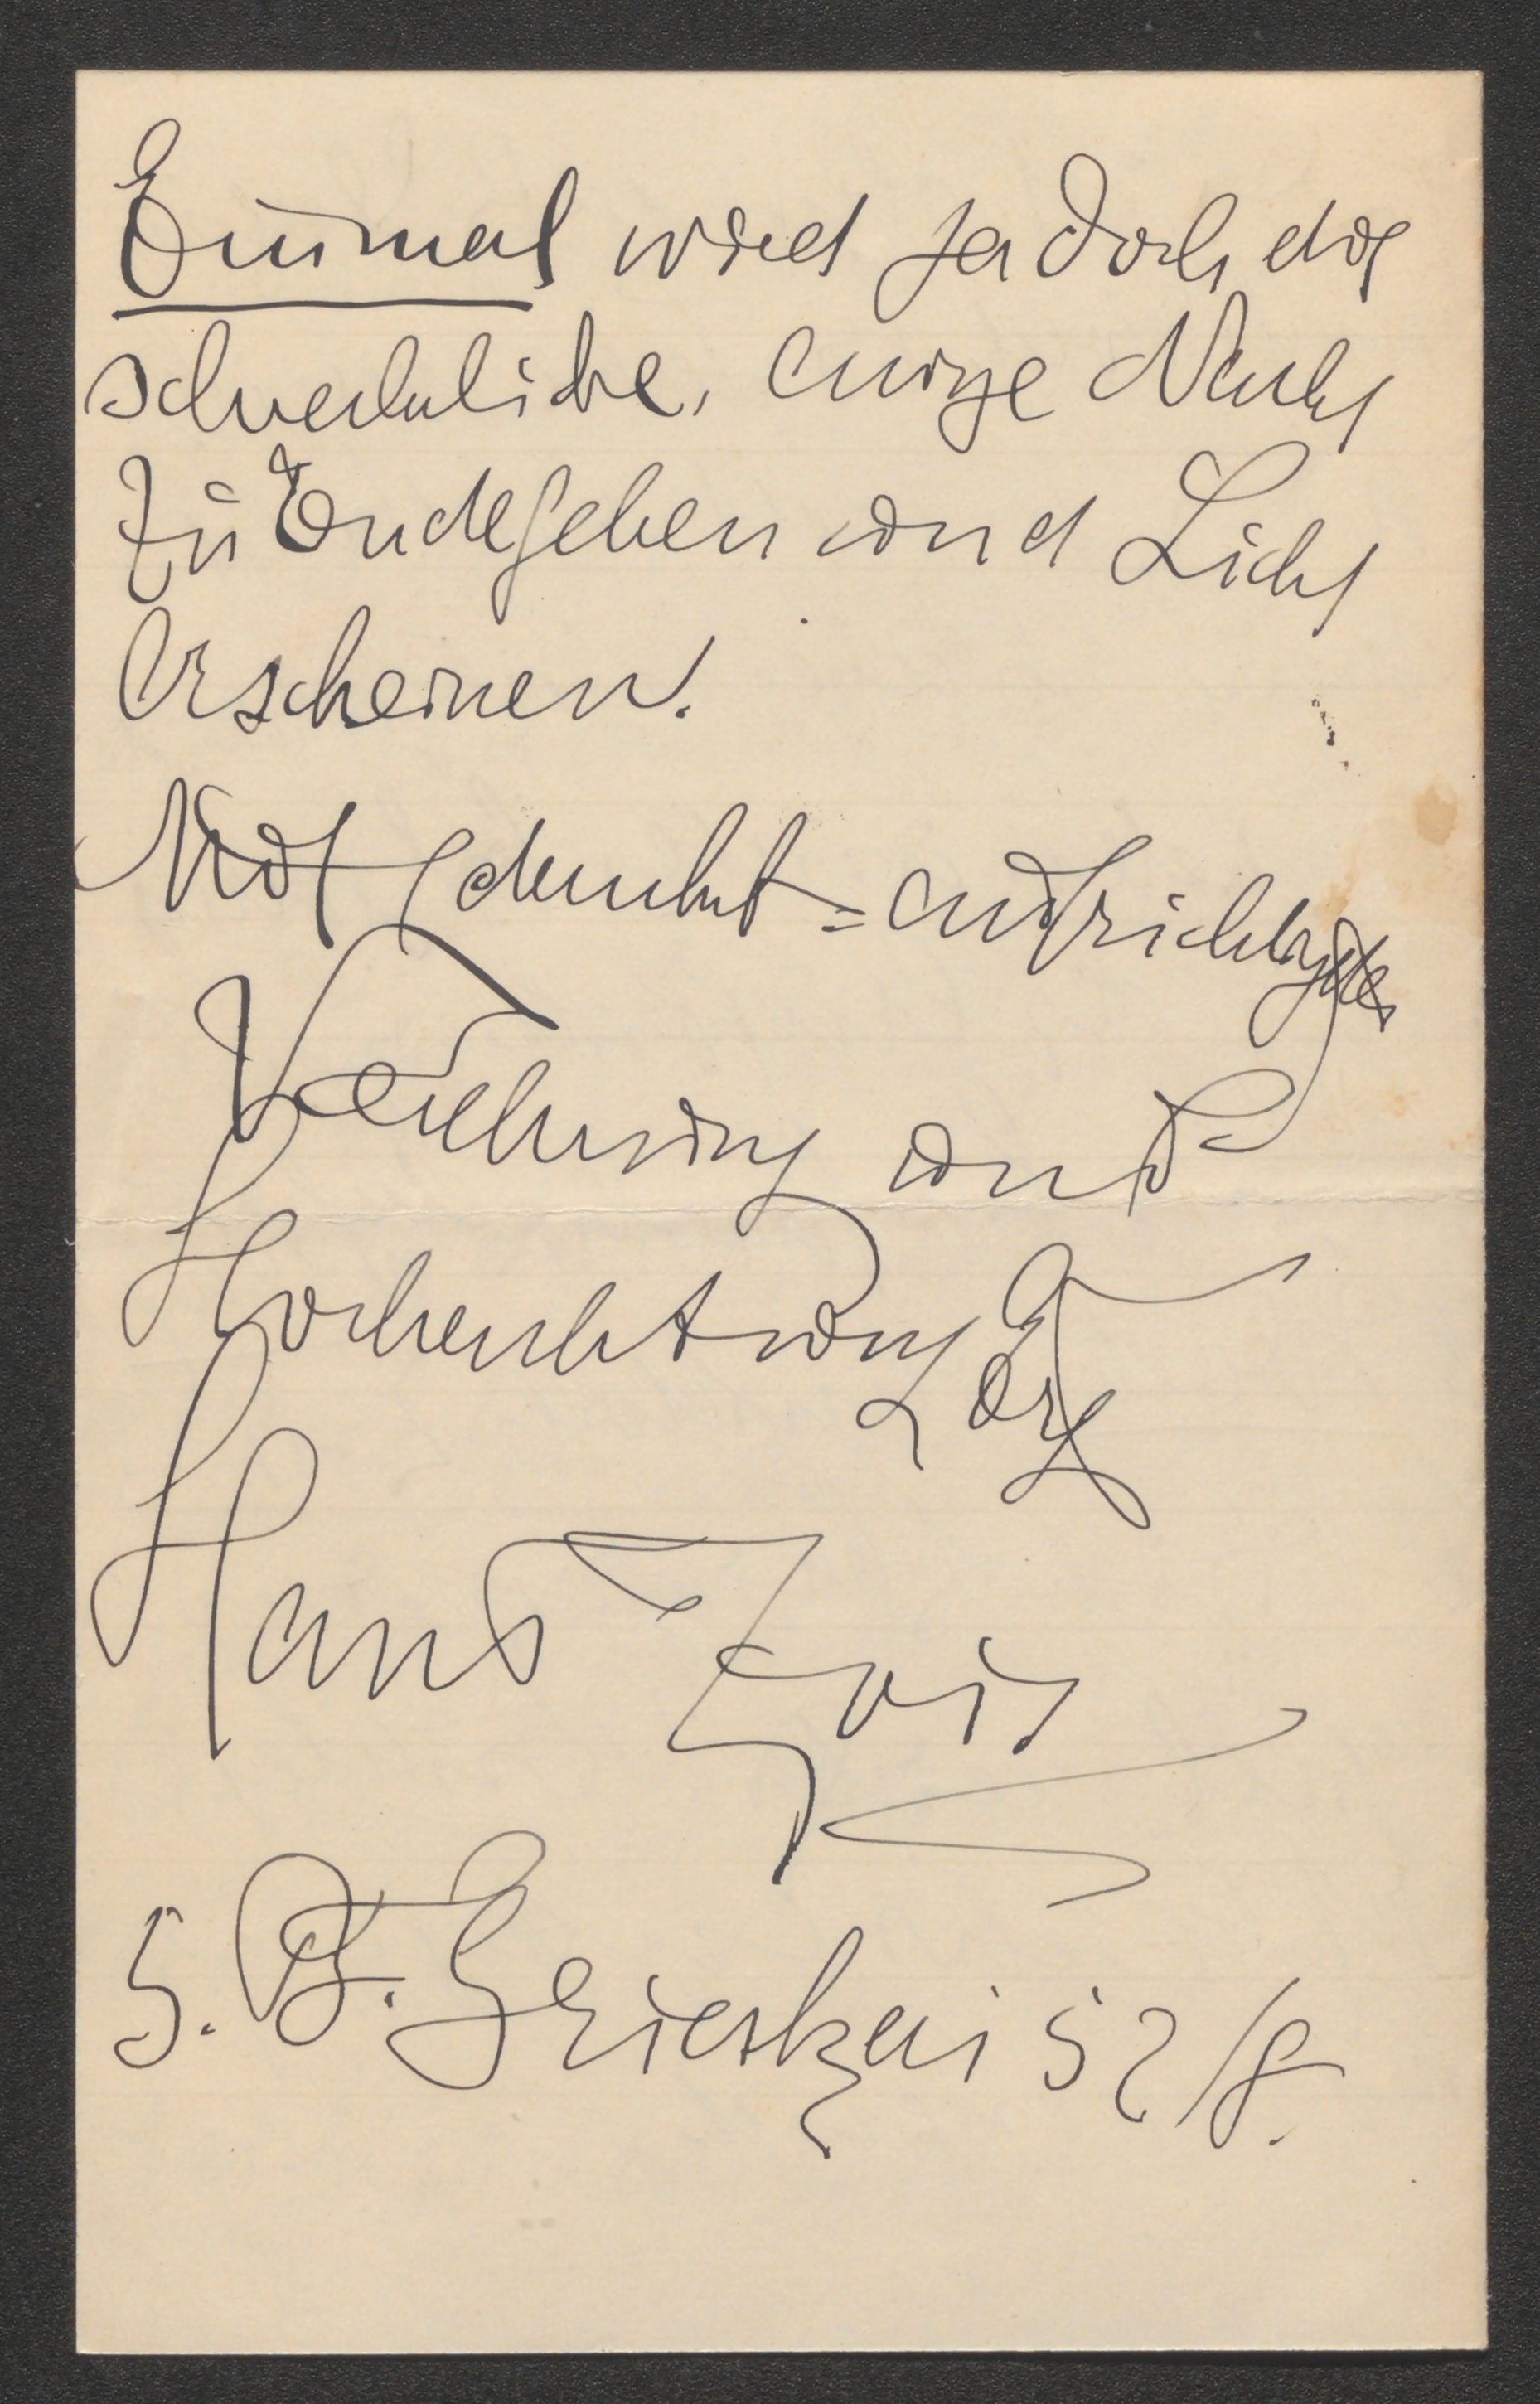 Einmal wird ja doch die
schreckliche, ewige Nacht
zu Ende gehen und Licht
erscheinen.
Mit dankbar-aufrichtigster
Verehrung und
Hochachtung
Hans Zois
Grieskai 52/